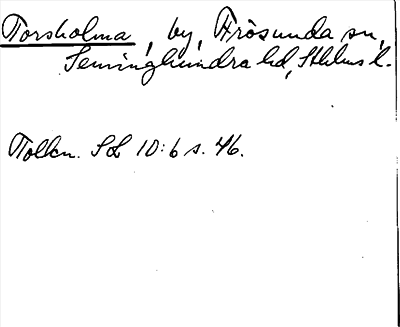 Torsholma, by, Frösunda sn,
Seminghundra hd, Sthlms l.
Tollin. SL 10:6 s. 46.